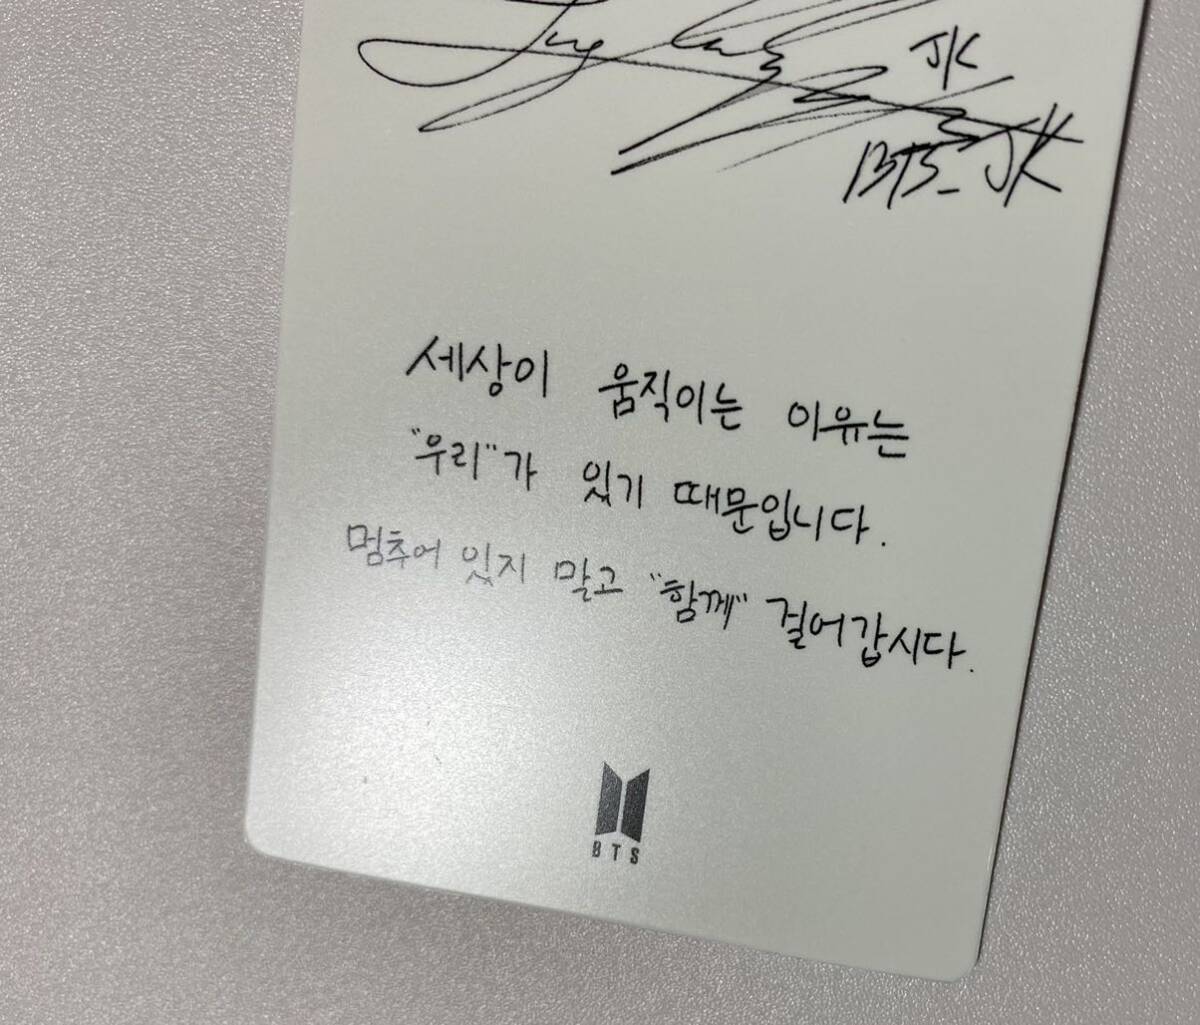 JK
BTS_JK
세상이 움직이는 이유는
"우리"가 있기 때문입니다.
멈추어 있지 말고 "함께" 걸어갑시다.
BTS